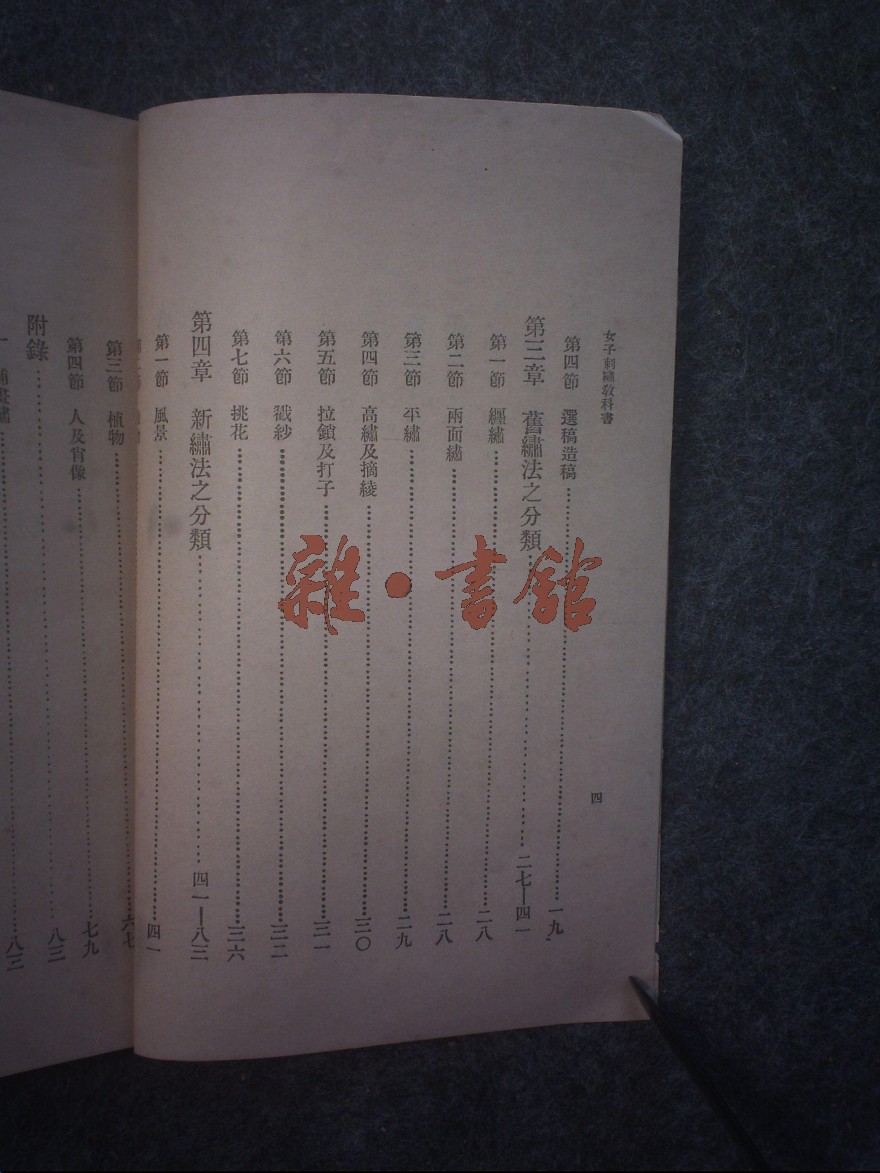 女子刺繡教科書
四
第四節 選稿造稿⋯⋯一九
第三章 舊繡法之分類⋯⋯二七—四一
第一節 纒繡⋯⋯二八
第二節 兩面繡⋯⋯二八
第三節 平繡⋯⋯二九
第四節 高繡及摘綾⋯⋯三〇
第五節 拉鎖及打子⋯⋯三一
第六節 戳紗⋯⋯三二
第七節 挑花⋯⋯三六
第四章 新繡法之分類⋯⋯四一—八三
第一節 風景⋯⋯四一
第三節 植物⋯⋯六七
第四節 人及肖像⋯⋯七九
附錄⋯⋯八三
一 補畫繡⋯⋯八三
雜·書館